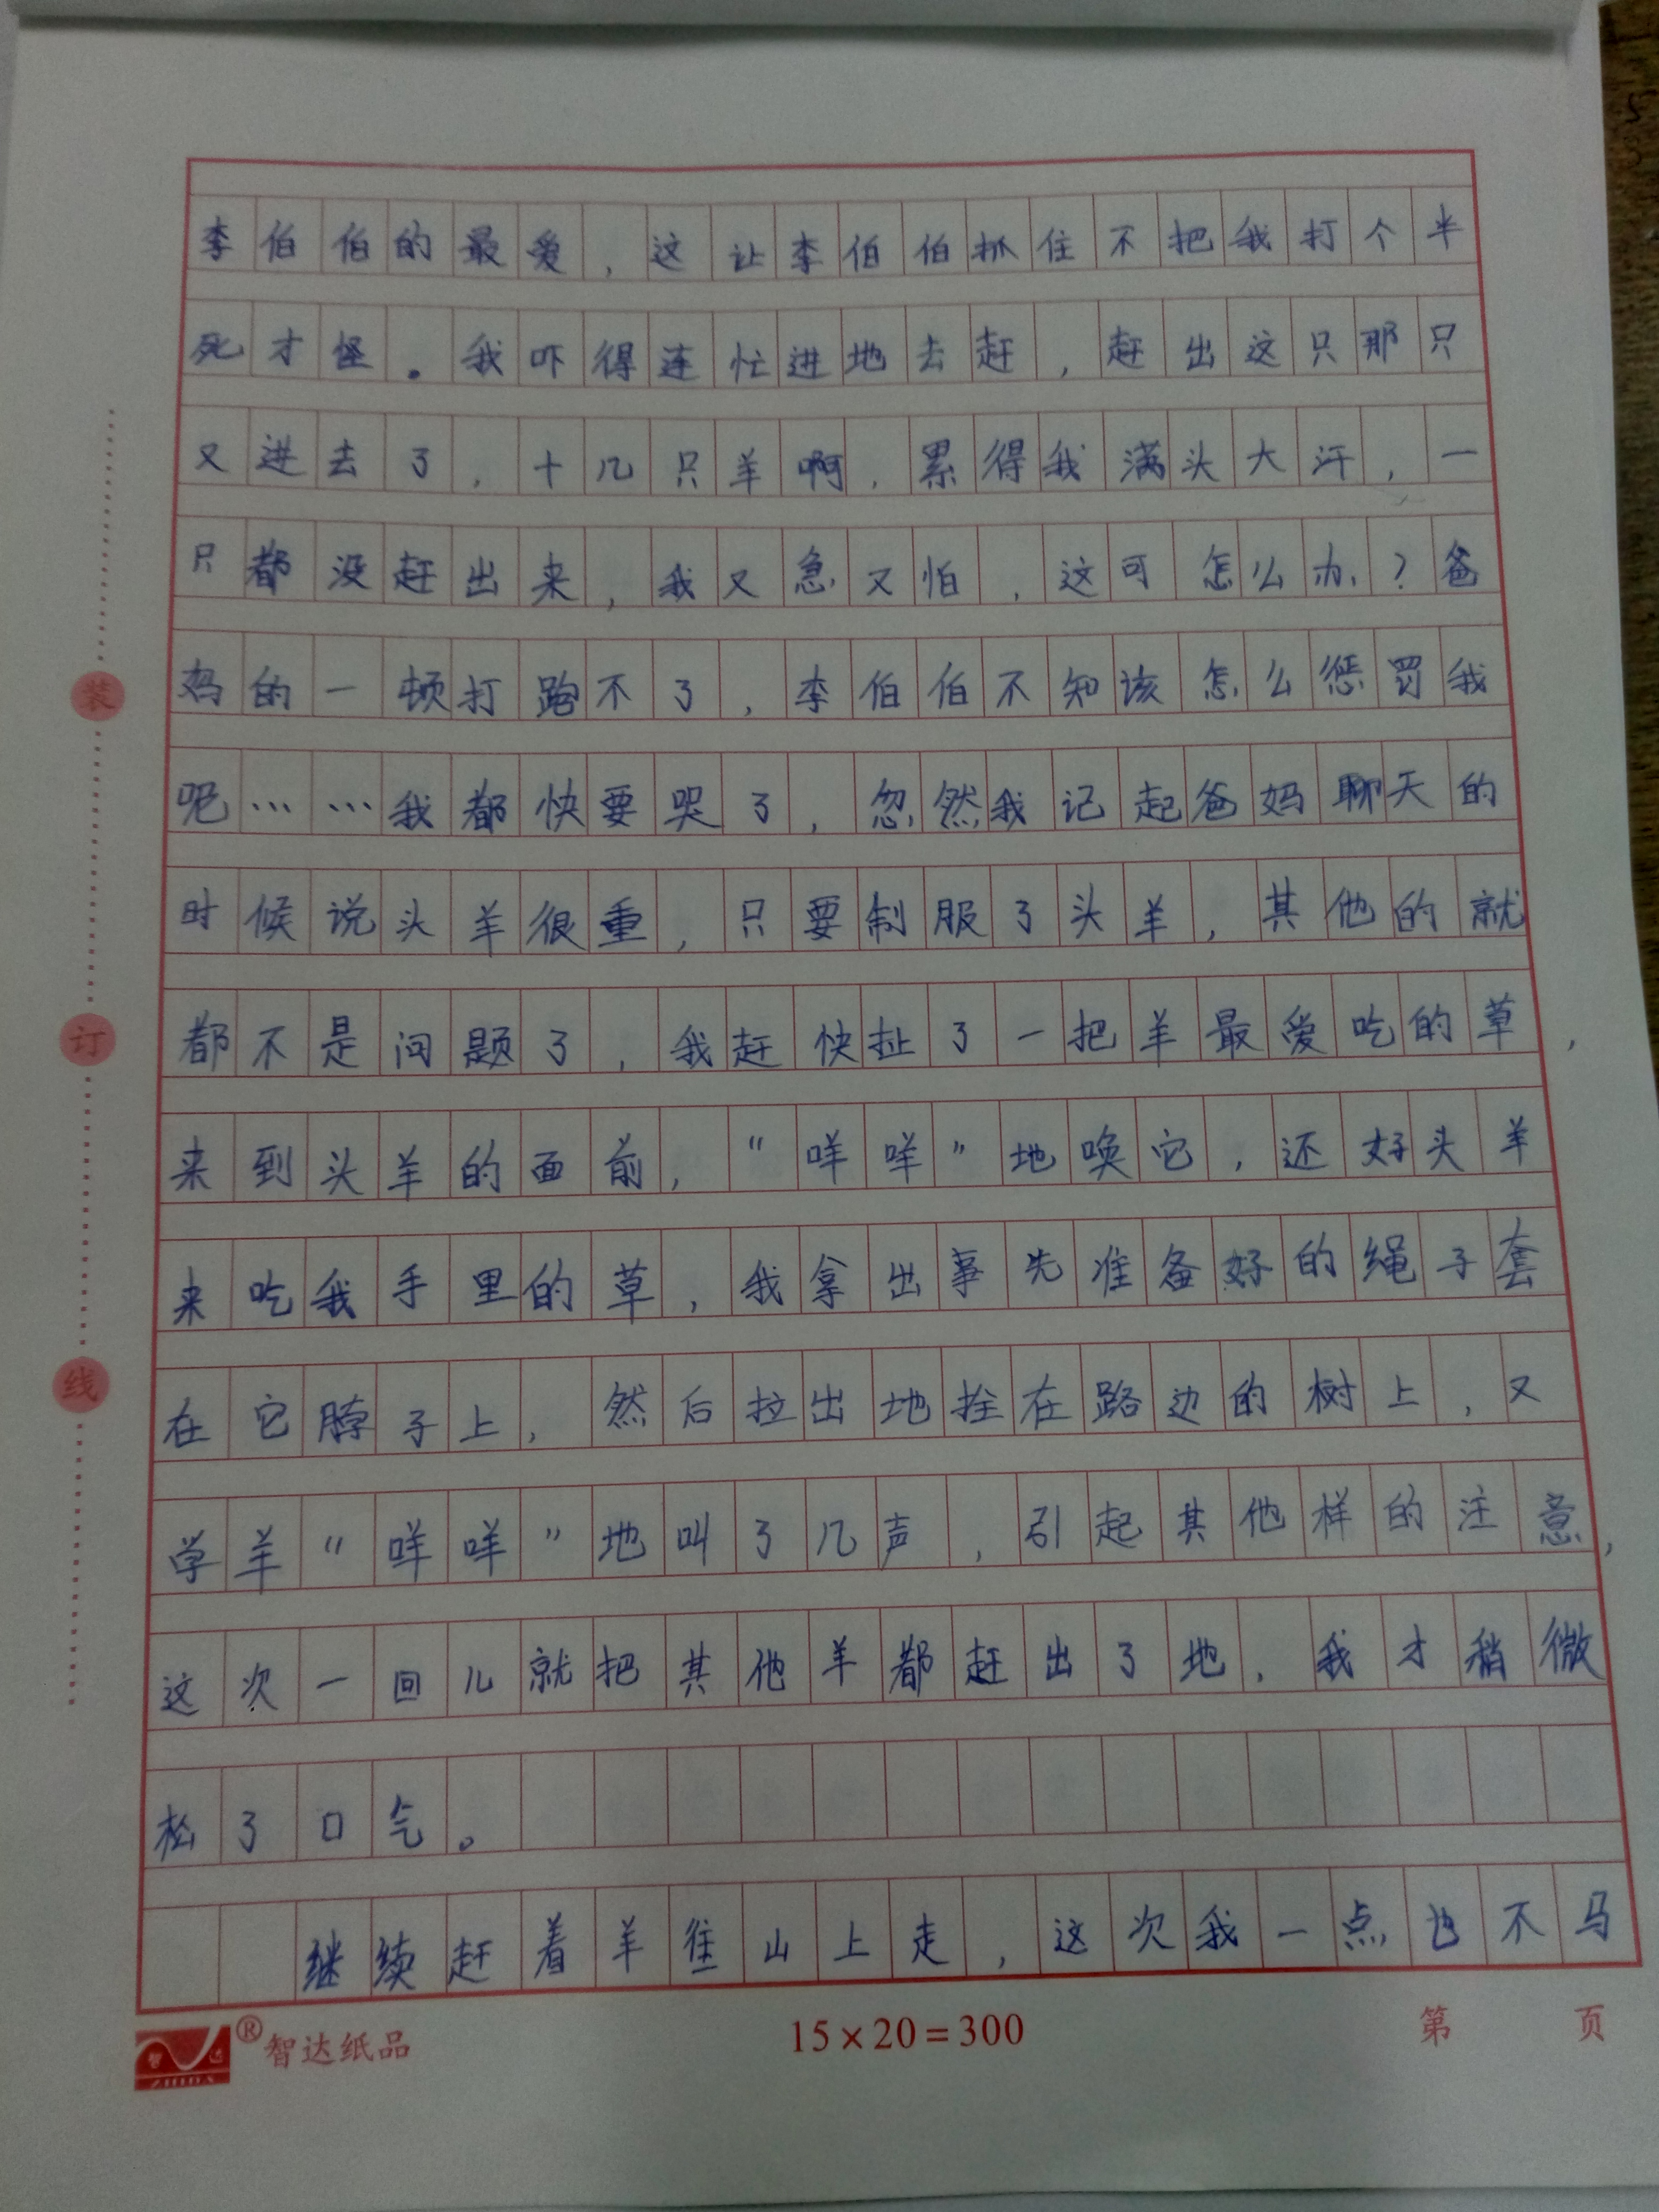 李伯伯的最爱，这让李伯伯抓住不把我打个半
死才怪。我吓得连忙进地去赶，赶出这只那只
又进去了，十几只羊啊，累得我满头大汗，一
只都没赶出来，我又急又怕，这可怎么办？爸
妈的一顿打跑不了，李伯伯不知该怎么惩罚我
吧……我都快要哭了，忽然我记起爸妈聊天的
时候说头羊很重，只要制服了头羊，其他的就
都不是问题了，我赶快扯了一把羊最爱吃的草，
来到头羊的面前，“咩咩”地唤它，还好头羊
来吃我手里的草，我拿出事先准备好的绳子套
在它脖子上，然后拉出地拴在路边的树上，又
学羊“咩咩”地叫了几声，引起其他样的注意，
这次一回儿就把其他羊都赶出了地，我才稍微
松了口气。
继续赶着羊往山上走，这次我一点也不马
装
订
线
智达
ZHIDA
®智达纸品
15×20=300
第 页